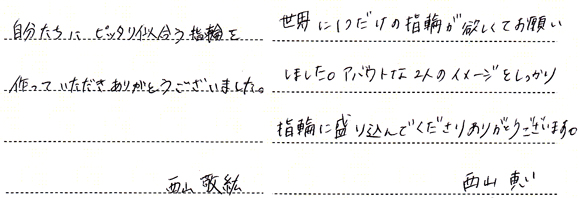 自分たちに ピッタリ似合う指輪を
作っていただきありがとうございました。
西山 敬紘
世界に1つだけの指輪が欲しくてお願い
しました。アバウトな2人のイメージをしっかり
指輪に盛り込んでくださりありがとうございます。
西山 恵い